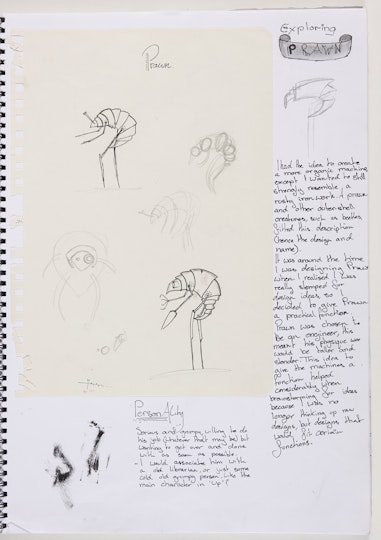 Exploring
PRAWN
Prawn
I had the idea to create
a more organic machine,
except I wanted to still
strongly resemble a
rusty ironwork. A prawn
and other other shell
creatures, such as beetles,
fitted this description
(hence the design and
name).
It was around the time
I was designing Prawn
when I realised I was
really stumped for
design ideas, so
decided to give Prawn
a practical function.
Prawn was chosen to
be an engineer, this
meant his physique
would be taller and
slender. This idea to
give the machines a
function helped
considerably when
brainstorming for ideas
because I was no
longer thinking up new
designs, but designs that
would fit certain
functions.
Personality
Serious and grumpy, willing to do
his job (whatever that may be) but
wanting to get over and done
with as soon as possible.
- I would associate him with
a old librarian, or just some
cold old grumpy person like the
main character in 'Up'?